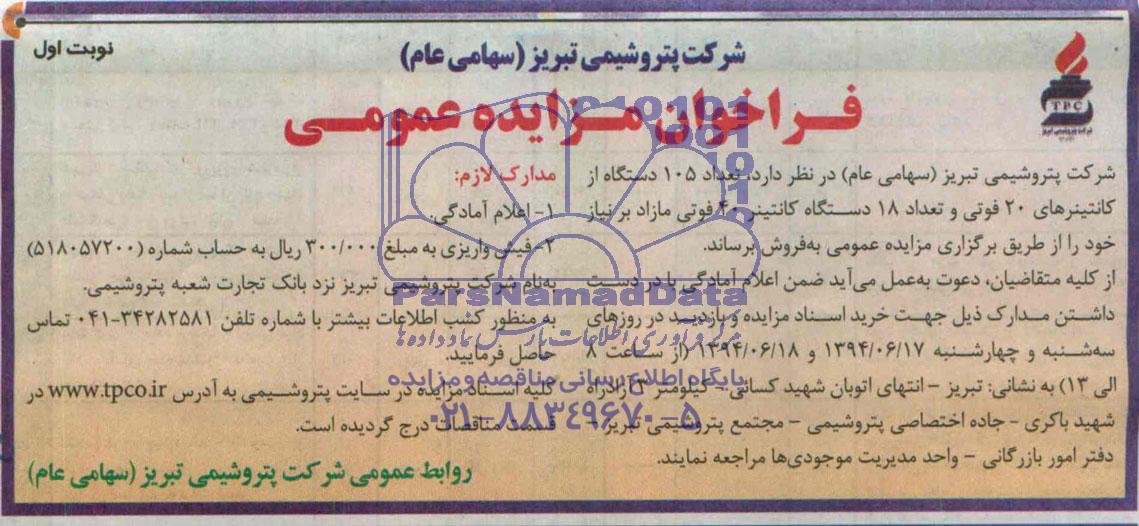 نوبت اول
شرکت پتروشیمی تبریز (سهامی عام)
فراخوان مزایده عمومی
TPC
شرکت پتروشیمی تبریز
شرکت پتروشیمی تبریز (سهامی عام) در نظر دارد، تعداد ۱۰۵ دستگاه از
کانتینرهای ۲۰ فوتی و تعداد ۱۸ دستگاه کانتینر ۴۰ فوتی مازاد بر نیاز
خود را از طریق برگزاری مزایده عمومی به‌فروش برساند.
از کلیه متقاضیان، دعوت به‌عمل می‌آید ضمن اعلام آمادگی با در دست
داشتن مدارک ذیل جهت خرید اسناد مزایده و بازدید در روزهای
سه‌شنبه و چهارشنبه ۱۳۹۴/۰۶/۱۷ و ۱۳۹۴/۰۶/۱۸ (از ساعت ۸
الی ۱۳) به نشانی: تبریز – انتهای اتوبان شهید کسائی – کیلومتر ۳ آزادراه
شهید باکری - جاده اختصاصی پتروشیمی – مجتمع پتروشیمی تبریز –
دفتر امور بازرگانی – واحد مدیریت موجودی‌ها مراجعه نمایند.
مدارک لازم:
۱- اعلام آمادگی.
۲- فیش واریزی به مبلغ ۳۰۰/۰۰۰ ریال به حساب شماره (۵۱۸۰۵۷۲۰۰)
به‌نام شرکت پتروشیمی تبریز نزد بانک تجارت شعبه پتروشیمی.
به منظور کسب اطلاعات بیشتر با شماره تلفن ۳۴۲۸۲۵۸۱-۰۴۱ تماس
حاصل فرمایید.
کلیه اسناد مزایده در سایت پتروشیمی به آدرس www.tpco.ir در
قسمت مناقصات درج گردیده است.
روابط عمومی شرکت پتروشیمی تبریز (سهامی عام)
ParsNamadData
مرکز فرآوری اطلاعات پارس نماد داده‌ها
پایگاه اطلاع رسانی مناقصه و مزایده
۰۲۱-۸۸۳۴۹۶۷۰-۵